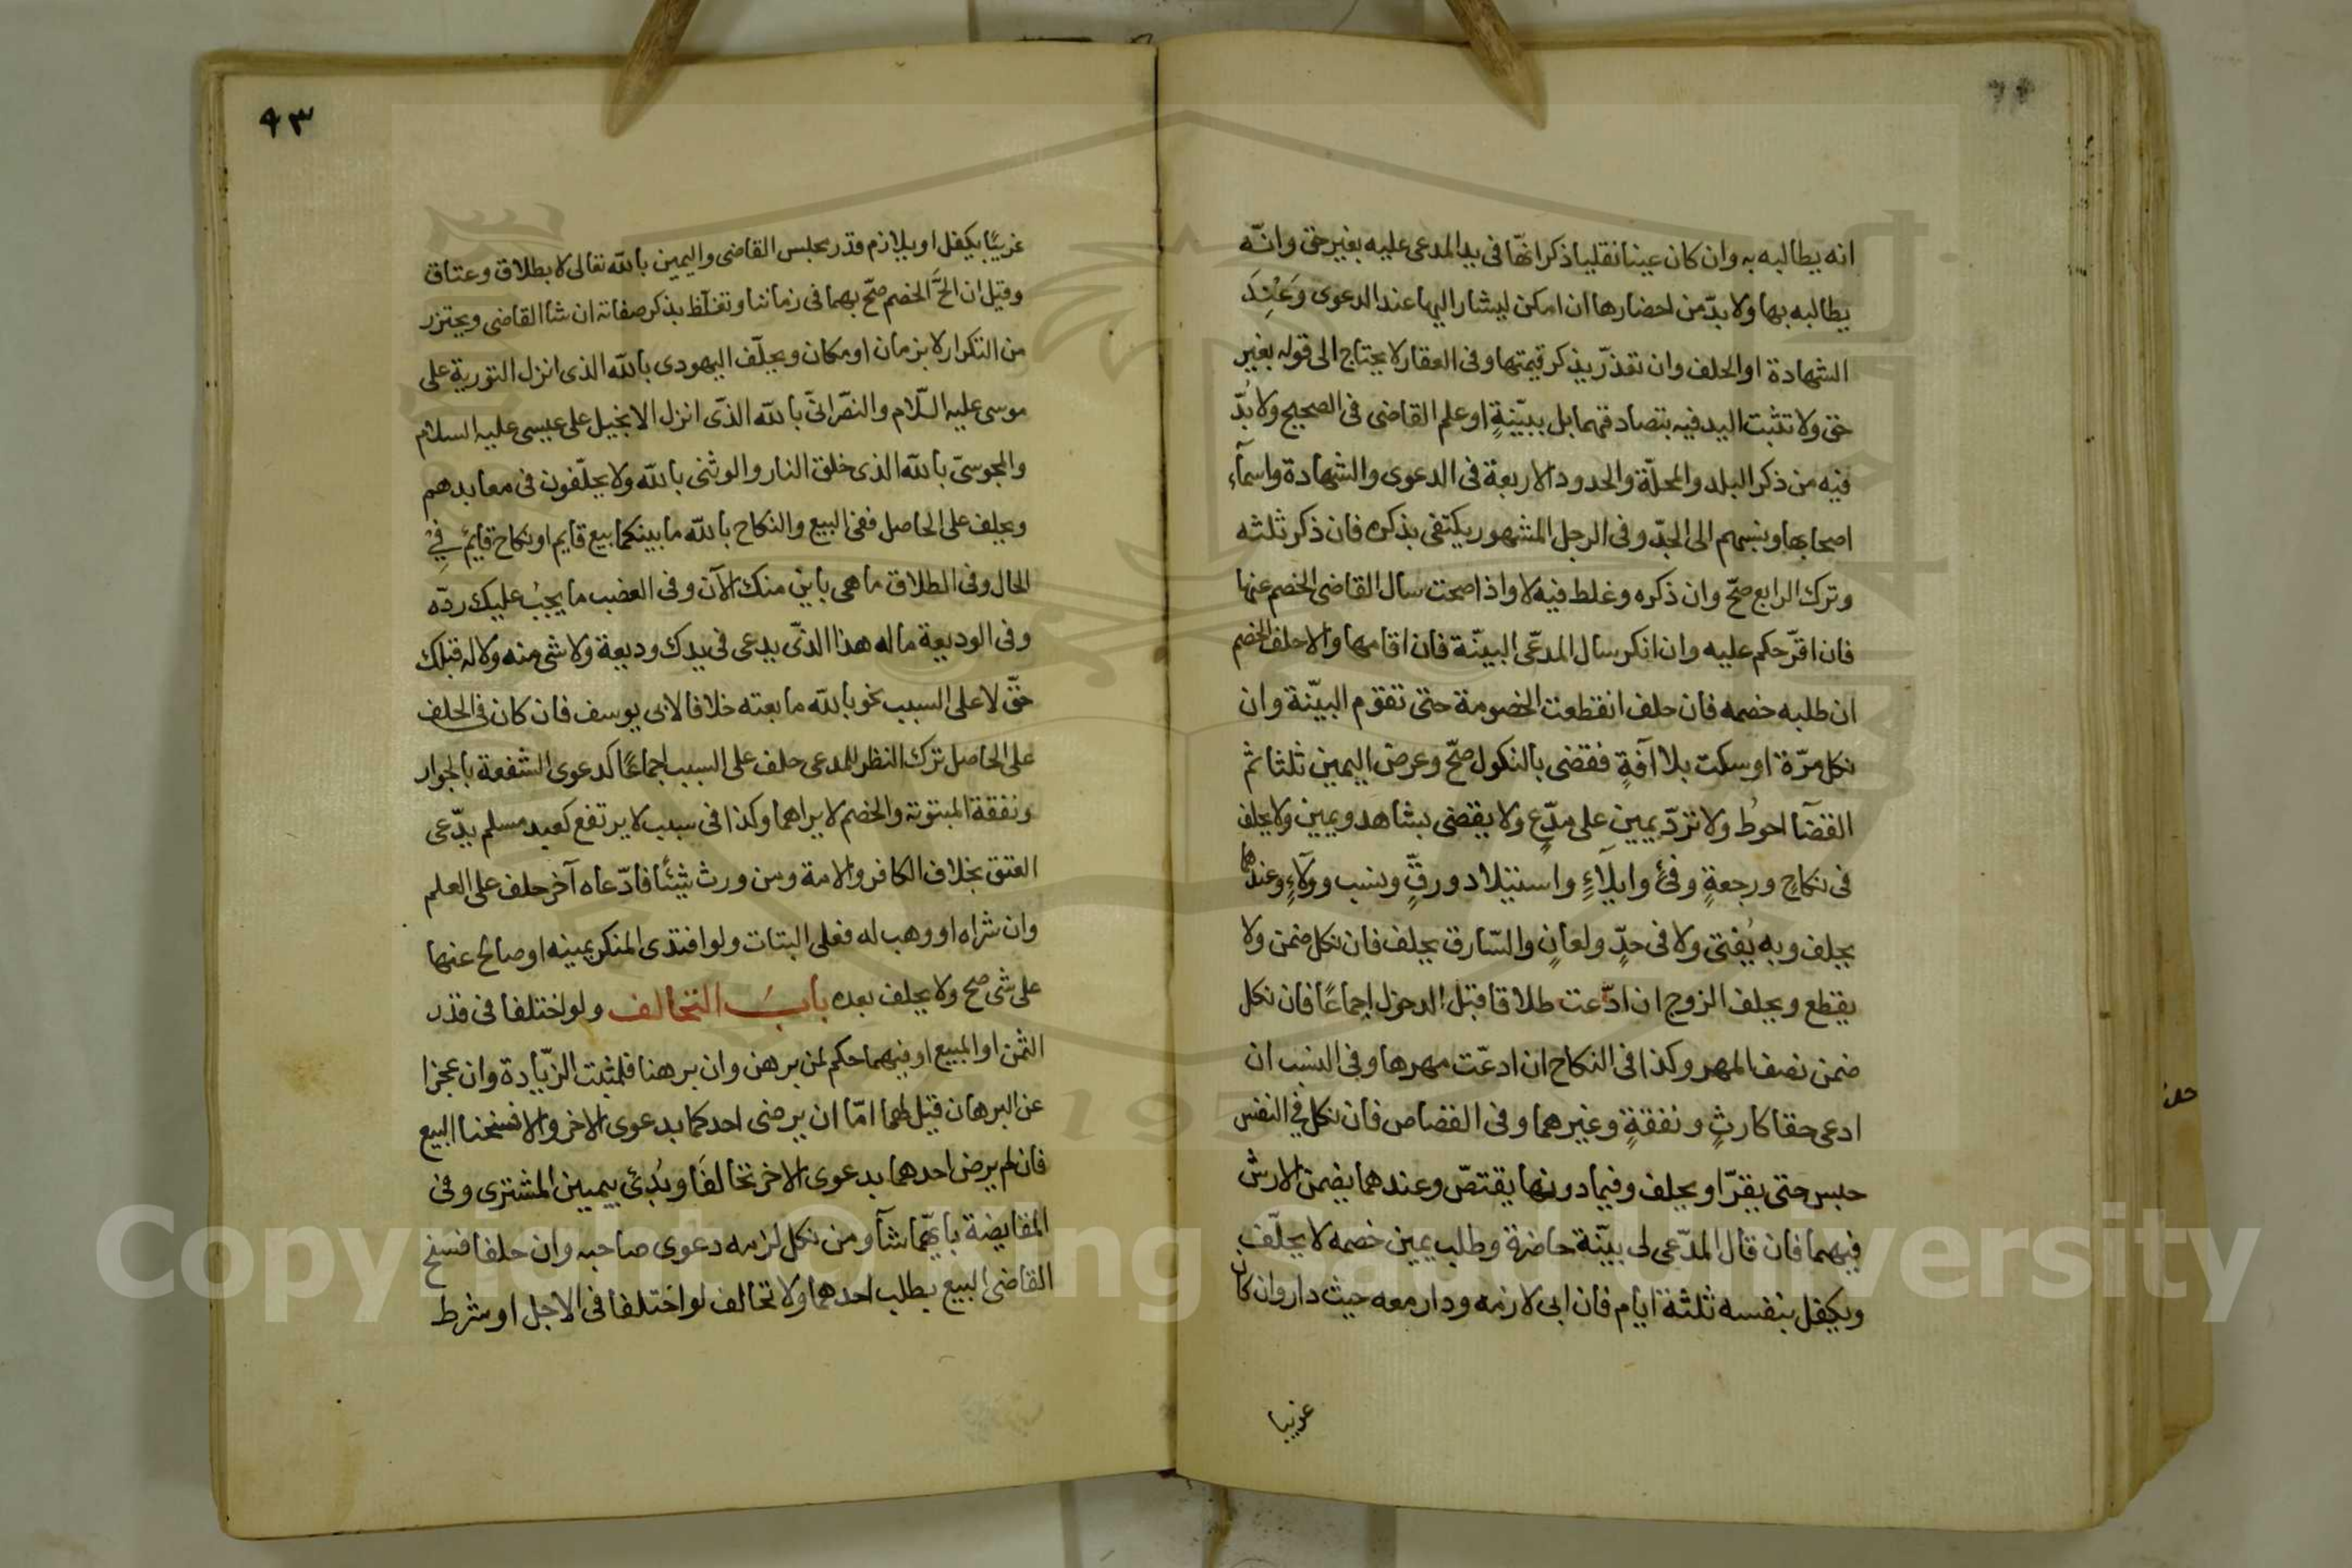 انه يطالبه به وان كان عينا نقليا ذكر انّها فى يد المدعى عليه بغير حق وانّه
يطالبه بها ولا بدّ من احضارها ان امكن ليشار اليها عند الدعوى وَعِنْدَ
الشهادة او الحلف وان تعذّر يذكر قيمتها وفى العقار لا يحتاج الى قوله بغير
حق ولا تثبت اليد فيه بتصادقهما بل ببيّنةٍ او علم القاضى فى الصحيح ولا بُدّ
فيه من ذكر البلد والمحلّة والحدود الاربعة فى الدعوى والشهادة واسمآء
اصحابها ونسبهم الى الجدّ وفى الرجل المشهور يكتفى بذكره فان ذكر ثلثه
وترك الرابع صحّ وان ذكره وغلط فيه لا واذا صحت سال القاضى الخصم عنها
فان اقرّ حكم عليه وان انكر سال المدعّى البيّنة فان اقامها والا حلف الخصم
ان طلبه خصمه فان حلف انقطعت الخصومة حتى تقوم البيّنة وان
نكل مرّة او سكت بلا آفةٍ فقضى بالنكول صحّ وعرض اليمين ثلثا ثم
القضآ احوط ولا تردّ يمين على مدّعٍ ولا يقضى بشاهد ويمين ولا يحلف
فى نكاحٍ ورجعةٍ وفئ وايلآءٍ واستيلاد ورقٍّ ونسب وولآءٍ وعندهما
يحلف وبه يُفتى ولا فى حدٍّ ولعانٍ والسّارق يحلف فان نكل ضمن ولا
يقطع ويحلف الزوج ان ادّعت طلاقا قبل الدخول اجماعًا فان نكل
ضمن نصف المهر وكذا فى النكاح ان ادعّت مهرها وفى النسب ان
ادعى حقا كارثٍ ونفقةٍ وغيرهما وفى القصاص فان نكل فى النفس
حبس حتى يقرّ او يحلف وفيما دونها يقتصّ وعندهما يضمن الارش
فيهما فان قال المدّعى لى بيّنة حاضرة وطلب يمين خصمه لا يحلّف
ويكفل بنفسه ثلثة ايام فان ابى لازمه ودار معه حيث دار وان كان
غريبا
٩٣
غريبًا يكفل او يلازم قدر مجلس القاضى واليمين بالله تعالى لا بطلاق وعتاق
وقيل ان الحَّ الخصم صحّ بهما فى زماننا وتغلّظ بذكر صفاته ان شا القاضى ويحترز
من التكرار لا بزمان او مكان ويحلّف اليهودى بالله الذى انزل التورية على
موسى عليه السّلام والنصّرانىّ بالله الذّى انزل الانجيل على عيسى عليه السلام
والمجوسىّ بالله الذى خلق النار والوثنى بالله ولا يحلّفون فى معابدهم
ويحلف على الحاصل ففى البيع والنكاح بالله ما بينكما بيع قايم او نكاح قايم فِىْ
الحال وفى الطلاق ما هى باين منك الآن وفى الغضب ما يجبُ عليك ردّه
وفى الوديعة ماله هذا الذّى يدعى فى يدك وديعة ولا شى منه ولا له قبلك
حقّ لا على السبب نحو بالله ما بعته خلافا لابى يوسف فان كان فى الحلف
على الحاصل ترك النظر للمدعى حلف على السبب اجماعًا كدعوى الشفعة بالجوار
ونفقة المبتوتة والخصم لا يراهما وكذا فى سبب لا يرتفع كعبد مسلم يدّعى
العتق بخلاف الكافر والامة ومن ورث شيئًا فادّعاه آخر حلف على العلم
وان شراه او وهب له فعلى البتات ولو افتدى المنكر يمينه او صالح عنها
على شى صح ولا يحلف بعده بابُ التحالف ولو اختلفا فى قدر
الثمن او المبيع او فيهما حكم لمن برهن وان برهنا فلمثبت الزّيادة وان عجزا
عن البرهان قيل لهما امّا ان يرضى احدكما بدعوى الاخر والا فسخنا البيع
فان لم يرض احدهما بدعوى الاخر تحالفَا وبُدئ بيمين المشترى وفى
المقايضة بايّهما شآ ومن نكل لزمه دعوى صاحبه وان حلفا فسخ
القاضى البيع بطلب احدهما ولا تحالف لو اختلفا فى الاجل او شرط
Copyright © King Saud University